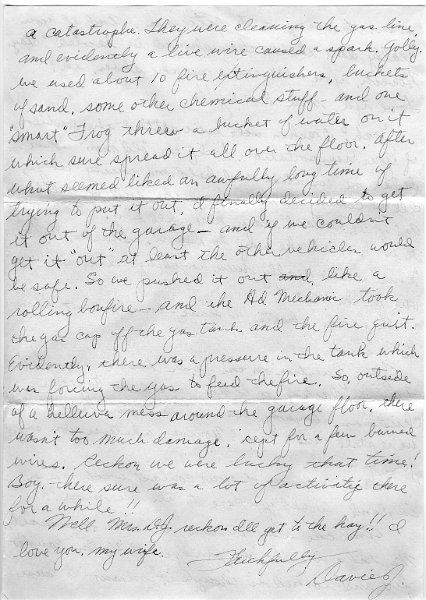 a catastrophe. They were cleaning the gas line,
and evidently a live wire caused a spark. Golly
we used about 10 fire extinguishers, buckets
of sand, some other chemical stuff - and one
"smart" Frog threw a bucket of water on it
which sure spread it all over the floor. After
what seemed liked an awfully long time of
trying to put it out, I finally decided to get
it out of the garage - and if we couldn't
get it "out" at least the other vehicles would
be safe. So we pushed it out and, like a
rolling bonfire - and the Hd Mechanic took
the gas cap off the gas tank and the fire quit.
Evidently, there was a pressure in the tank which
was forcing the gas to feed the fire. So, outside
of a helluva mess around the garage floor, there
wasn't too much damage, 'cept for a few burned
wires. Reckon we were lucky that time!
Boy, there sure was a lot of activity there
for a while!!
Well, Mrs. D.J. reckon I'll get to the hay!! I
love you, my wife.
Faithfully
Davie J.